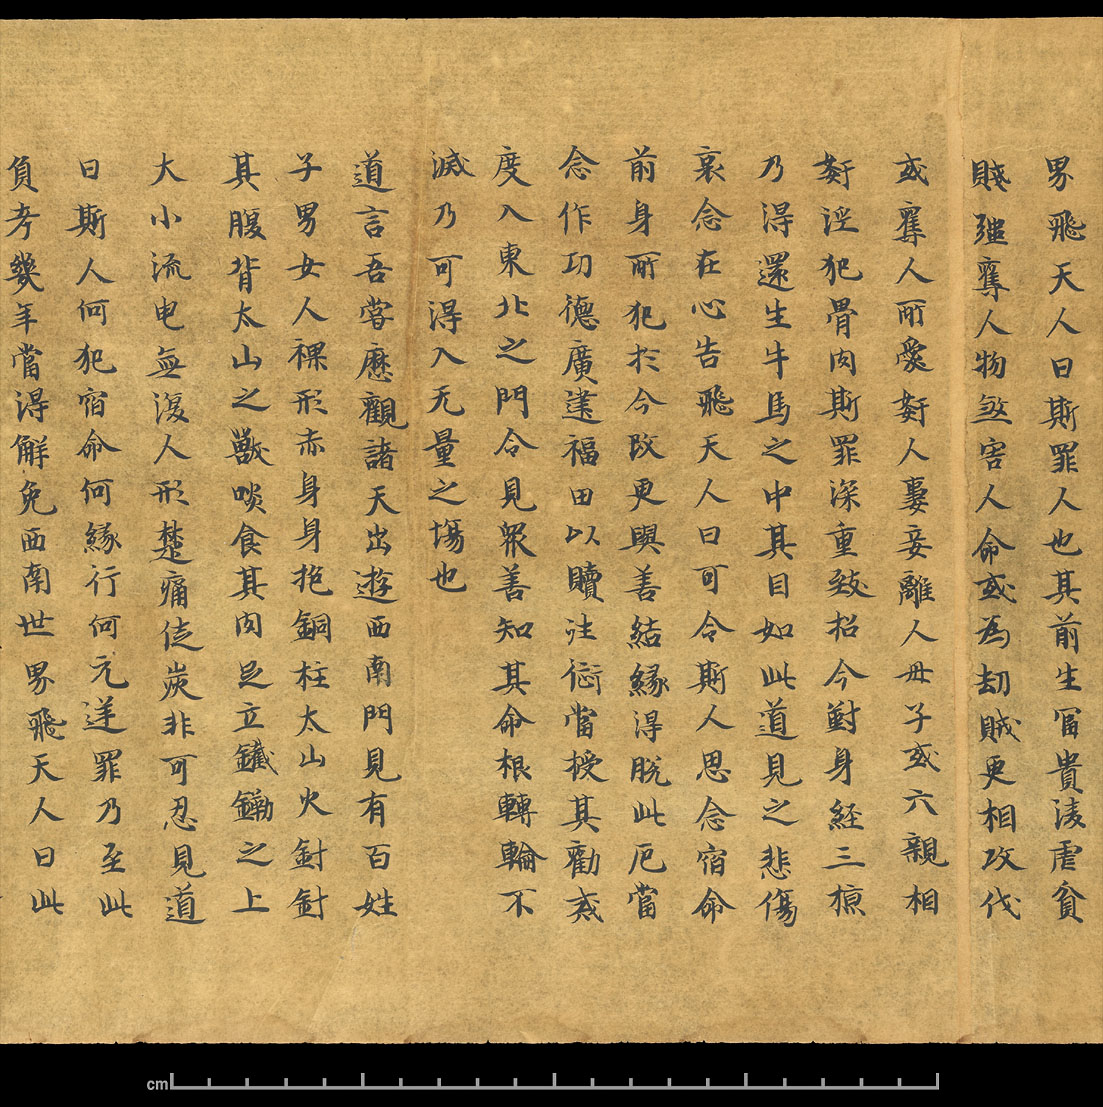 界飛天人曰斯罪人也其前生冨貴淩虐貧
賤強奪人物煞害人命或為劫賊更相攻伐
或奪人所愛姧人妻妾離人母子或六親相
姧淫犯骨肉斯罪深重致招今對身經三掠
乃得還生牛馬之中其目如此道見之悲傷
哀念在心告飛天人曰可令斯人思念宿命
前身所犯於今改更興善結緣得脫此厄當
念作功德廣建福田以贖往愆當授其勸戒
度入東北之門令見衆善知其命根轉輪不
滅乃可得入无量之塲也
道言吾甞歷觀諸天出遊西南門見有百姓
子男女人裸形赤身身抱銅柱太山火針針
其腹背太山之獸啖食其肉足立鐵鋤之上
大小流曳無復人形楚痛徒炭非可忍見道
曰斯人何犯宿命何緣行何元逆罪乃至此
負考幾年當得解免西南世界飛天人曰此